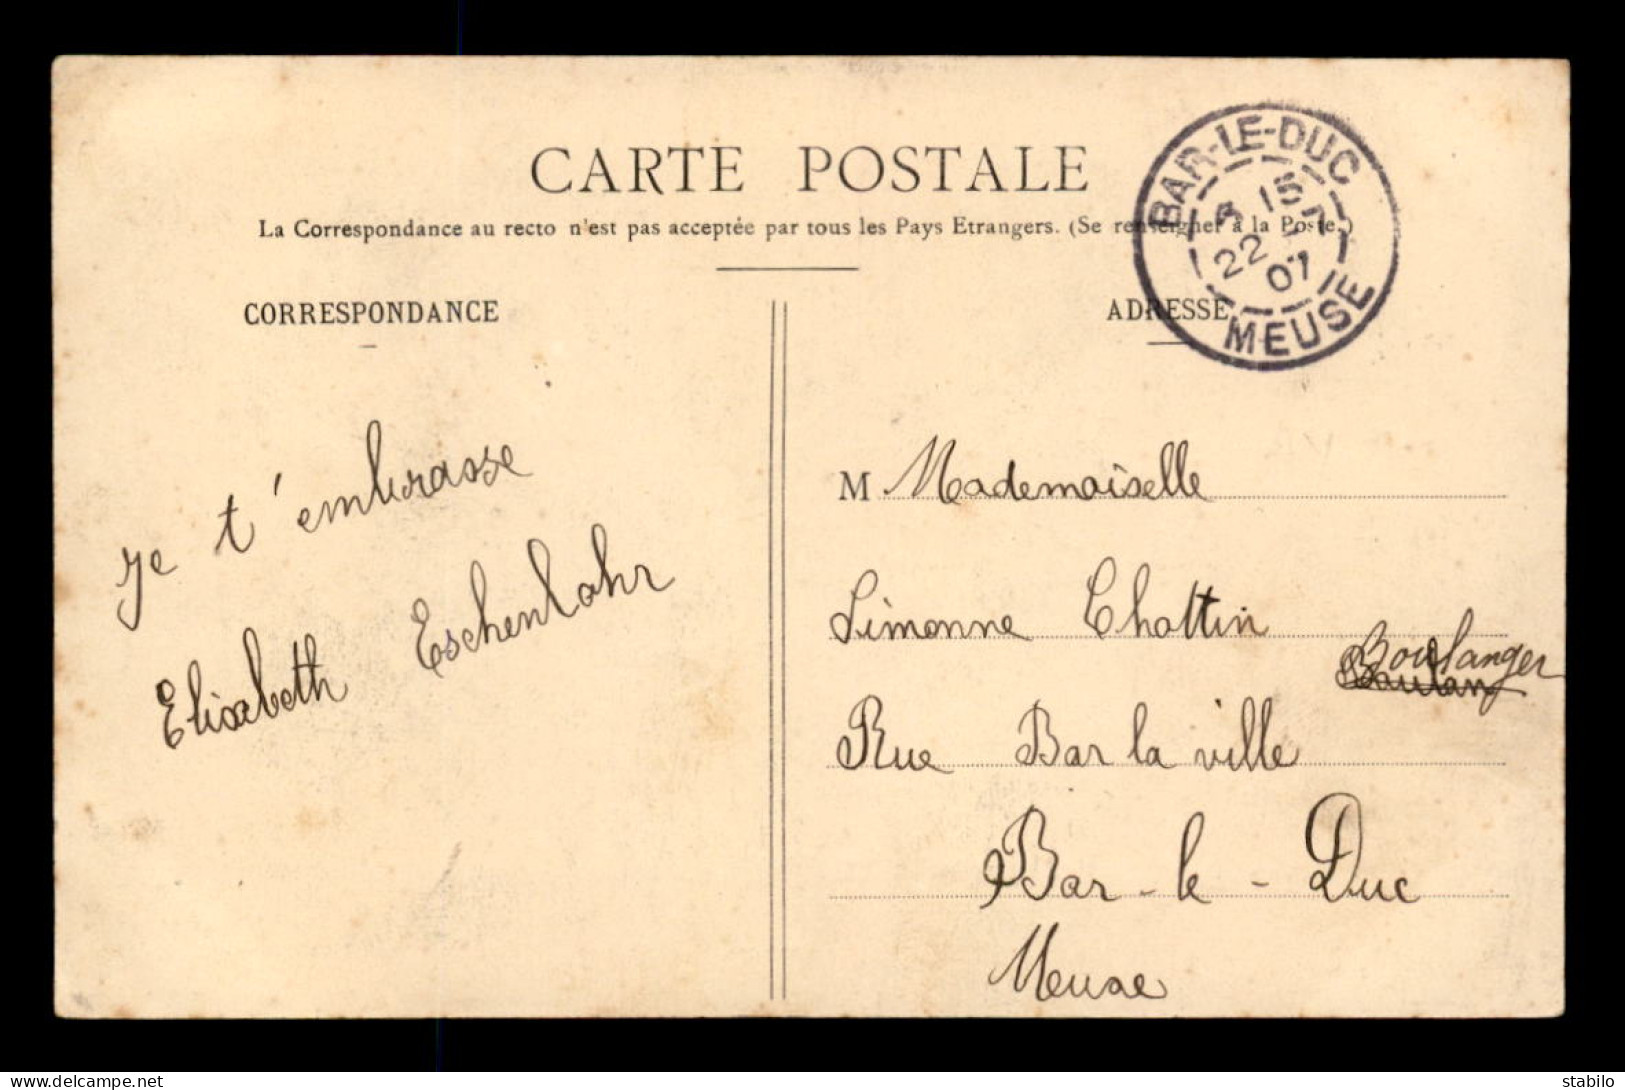 CARTE POSTALE
La Correspondance au recto n'est pas acceptée par tous les Pays Etrangers. (Se renseigner à la Poste.)
BAR-LE-DUC
15
22 - 7
07
MEUSE
CORRESPONDANCE
je t'embrasse
Elisabeth Eschenlohr
ADRESSE
M Mademoiselle
Simonne Chottin
Boulanger
Rue Bar la ville
Bar-le-Duc
Meuse
www.delcampe.net
stabilo